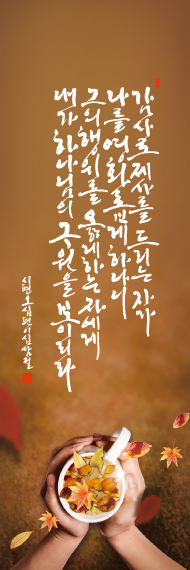 감사로 제사를 드리는 자가
나를 영화롭게 하나니
그의 행위를 옳게 하는 자에게
내가 하나님의 구원을 보이리라
시편 오십편 이십삼절